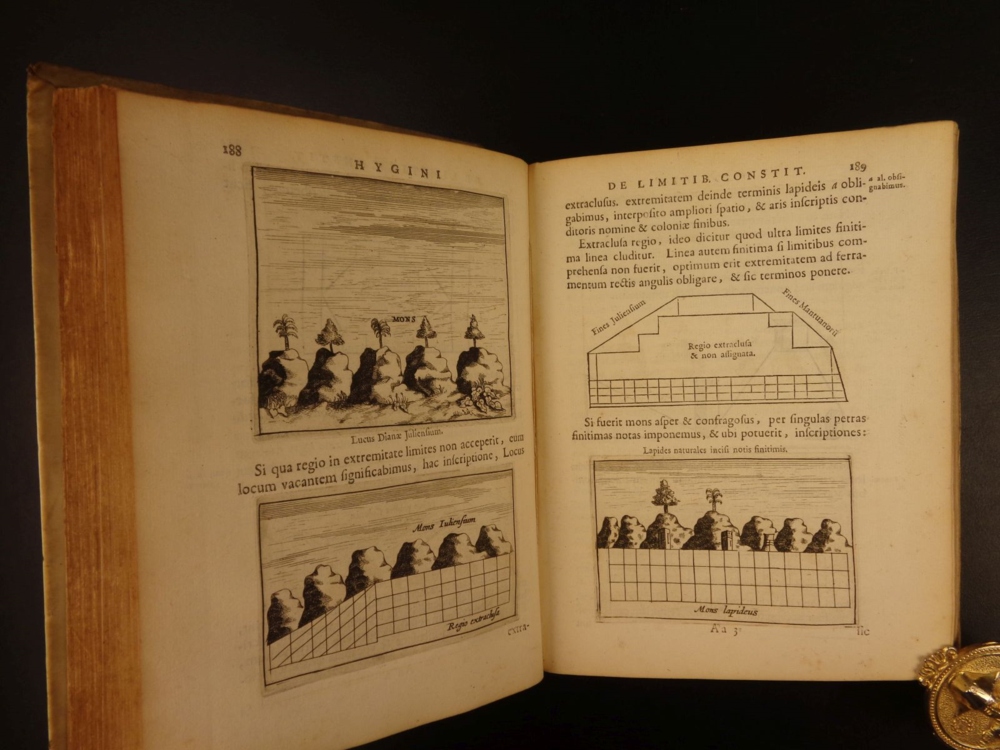 188
HYGINI
MONS
Lucus Dianæ Juliensium.
Si qua regio in extremitate limites non acceperit, eum
locum vacantem significabimus, hac inscriptione, Locus
Mons Iuliensium
Regio extraclusa
extra-
DE LIMITIB. CONSTIT.
189
extraclusus. extremitatem deinde terminis lapideis a obli-
gabimus, interposito ampliori spatio, & aris inscriptis con-
ditoris nomine & coloniæ finibus.
a al. obsi-
gnabimus.
Extraclusa regio, ideo dicitur quod ultra limites finiti-
ma linea cluditur. Linea autem finitima si limitibus com-
prehensa non fuerit, optimum erit extremitatem ad ferra-
mentum rectis angulis obligare, & sic terminos ponere.
Fines Juliensium
Fines Mantuanorū
Regio extraclusa
& non assignata.
Si fuerit mons asper & confragosus, per singulas petras
finitimas notas imponemus, & ubi potuerit, inscriptiones:
Lapides naturales incisi notis finitimis.
Mons lapideus
Aa 3
sic